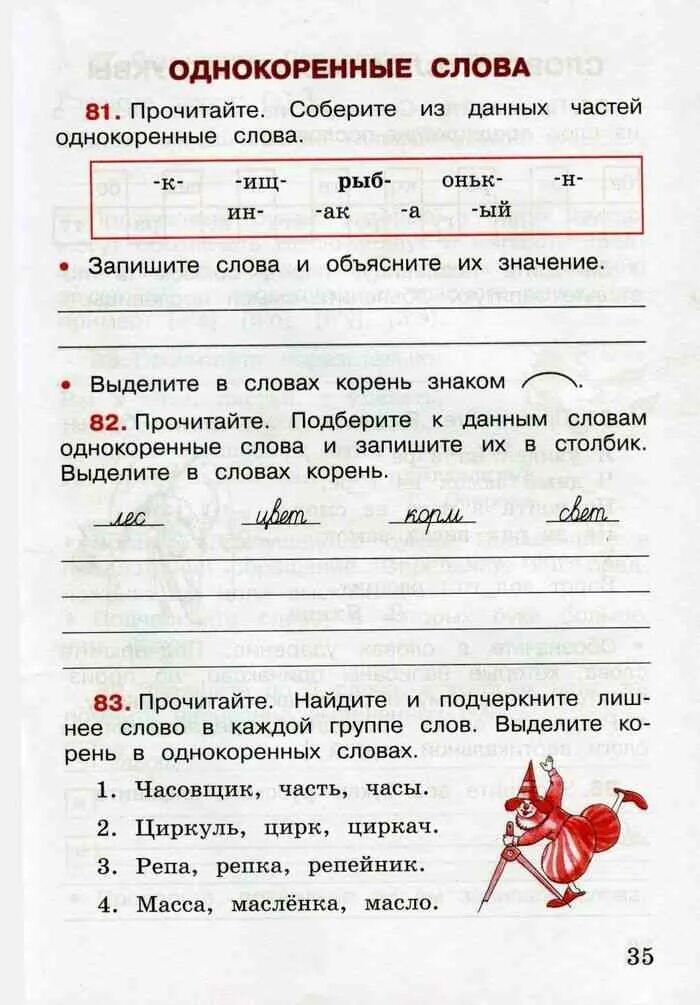 ОДНОКОРЕННЫЕ СЛОВА
81. Прочитайте. Соберите из данных частей
однокоренные слова.
-к- -ищ- рыб- оньк- -н-
ин- -ак -а -ый
• Запишите слова и объясните их значение.
• Выделите в словах корень знаком .
82. Прочитайте. Подберите к данным словам
однокоренные слова и запишите их в столбик.
Выделите в словах корень.
лес цвет корм свет
83. Прочитайте. Найдите и подчеркните лиш-
нее слово в каждой группе слов. Выделите ко-
рень в однокоренных словах.
1. Часовщик, часть, часы.
2. Циркуль, цирк, циркач.
3. Репа, репка, репейник.
4. Масса, маслёнка, масло.
35